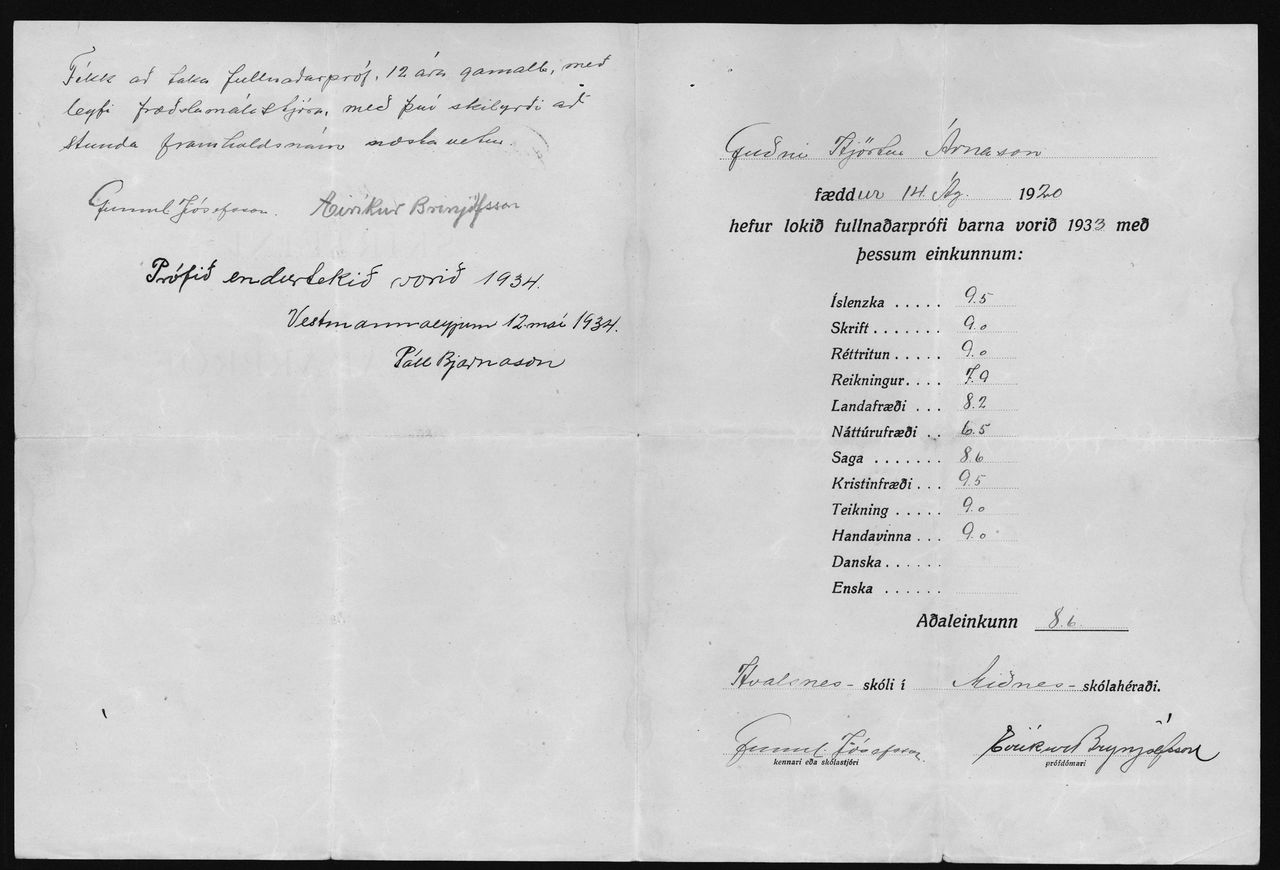 Fékk að taka fullnaðarpróf, 12 ára gamall, með
leyfi fræðslumálastjóra, með því skilyrði að
stunda framhaldsnám næsta vetur.
Gunnl. Jósefsson. Eiríkur Brynjólfsson
Prófið endurtekið vorið 1934.
Vestmannaeyjum 12 maí 1934.
Páll Bjarnason
Guðni Hjörtur Árnason
fæddur 14. Ág. 1920
hefur lokið fullnaðarprófi barna vorið 1933 með
þessum einkunnum:
Íslenzka ..... 9.5
Skrift ....... 9.0
Réttritun .... 9.0
Reikningur.... 7.9
Landafræði ... 8.2
Náttúrufræði .. 6.5
Saga ....... 8.6
Kristinfræði ... 9.5
Teikning ..... 9.0
Handavinna ... 9.0
Danska ......
Enska ......
Aðaleinkunn 8.6
Hvalsnes- skóli í Miðnes- skólahéraði.
Gunnl. Jósefsson. Eiríkur Brynjólfsson
kennari eða skólastjóri prófdómari